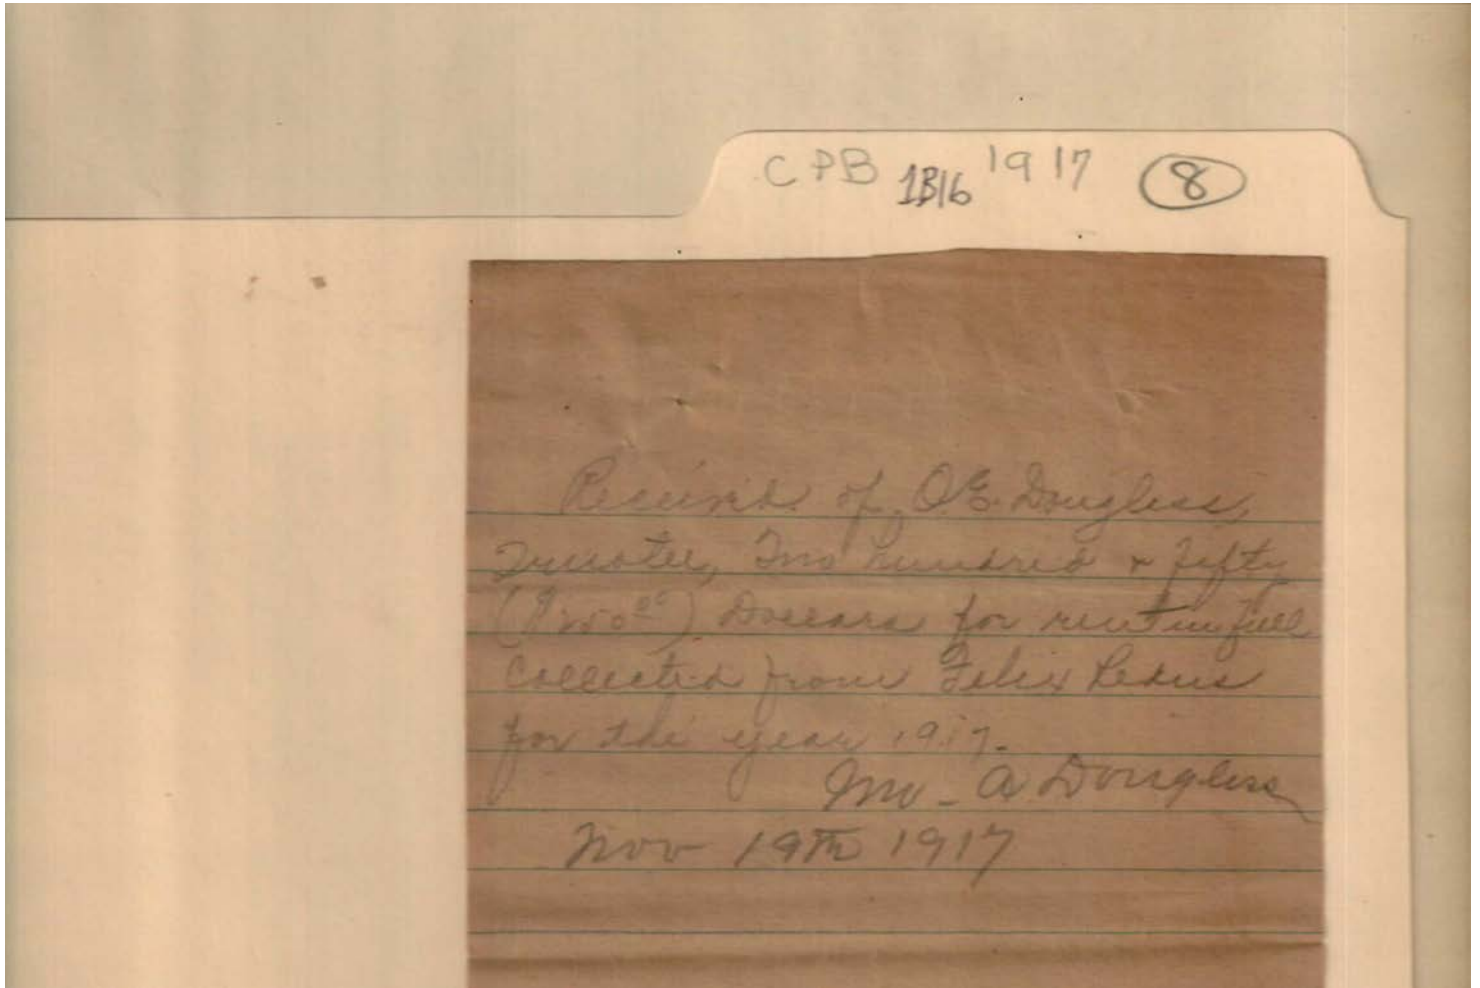 CPB 1B16 1917 8
Received of O.E. Douglass,
Trustee, Two hundred & fifty
(250 00) Dollars for rent in full
Collected from Felix
for the year 1917.
Jno. A Douglass
Nov 19th 1917